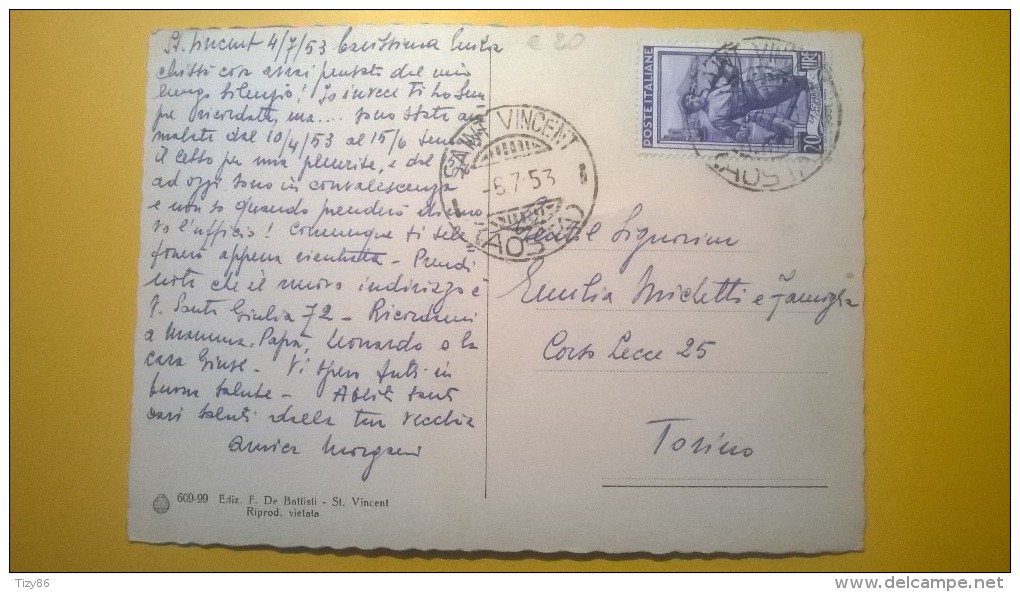 St. Vincent 4/7/53 Carissima Emilia
chissà cosa avrai pensato del mio
lungo silenzio! Io invece ti ho sem
pre ricordata, ma.... sono stata am
malata dal 10/4/53 al 15/6 tenendo
il letto per una pleurite, e da
ad oggi sono in convalescenza
e non so quando prenderò di nuo
vo l'ufficio! Comunque ti tele
fonerò appena rientrata - Prendi
nota che il nuovo indirizzo è
V. Santa Giulia 72 - Ricordami
a Mamma, Papà, Leonardo e la
cara Giuse - Vi spero tutti in
buona salute - Abbiti tanti
cari saluti dalla tua vecchia
amica Morgani
609-99 Ediz. F. De Battisti - St. Vincent
Riprod. vietata
€ 20
POSTE ITALIANE
LIRE 20
SAINT VINCENT
-6.7.53
(AOSTA)
SAINT VINCENT
(AOSTA)
Gentil Signorina
Emilia Michetti e Famiglia
Corso Lecce 25
Torino
Tizy86
www.delcampe.net